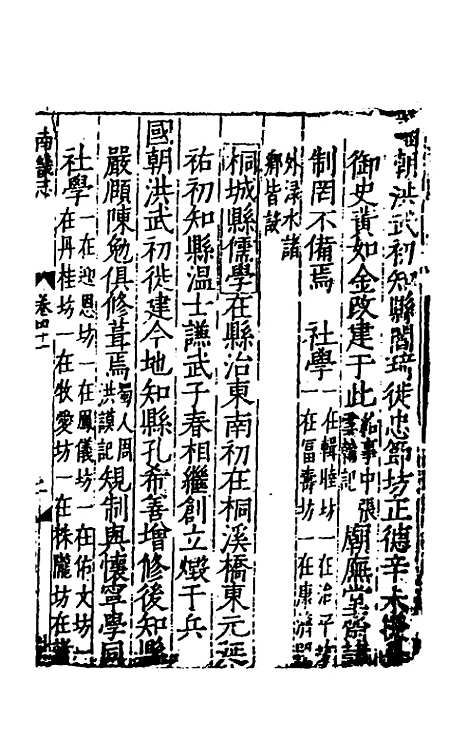 國朝洪武初知縣閻瑞徙忠節坊正德辛未提
御史黃如金改建于此給事中張雲翰記廟廡堂齋講
制罔不備焉 社學一在輯睦坊一在治平坊一在富壽坊一在東濟門
外渌水諸鄉皆設
桐城縣儒學在縣治東南初在桐溪橋東元延
祐初知縣温士謙武子春相繼創立燬于兵
國朝洪武初徙建今地知縣孔希善增修後知縣
嚴頤陳勉俱修葺焉蜀人周洪謨記規制與懷寧學同
社學一在迎恩坊一在鳳儀坊一在佑文坊一在丹桂坊一在牧愛坊一在
南畿志 卷四十二